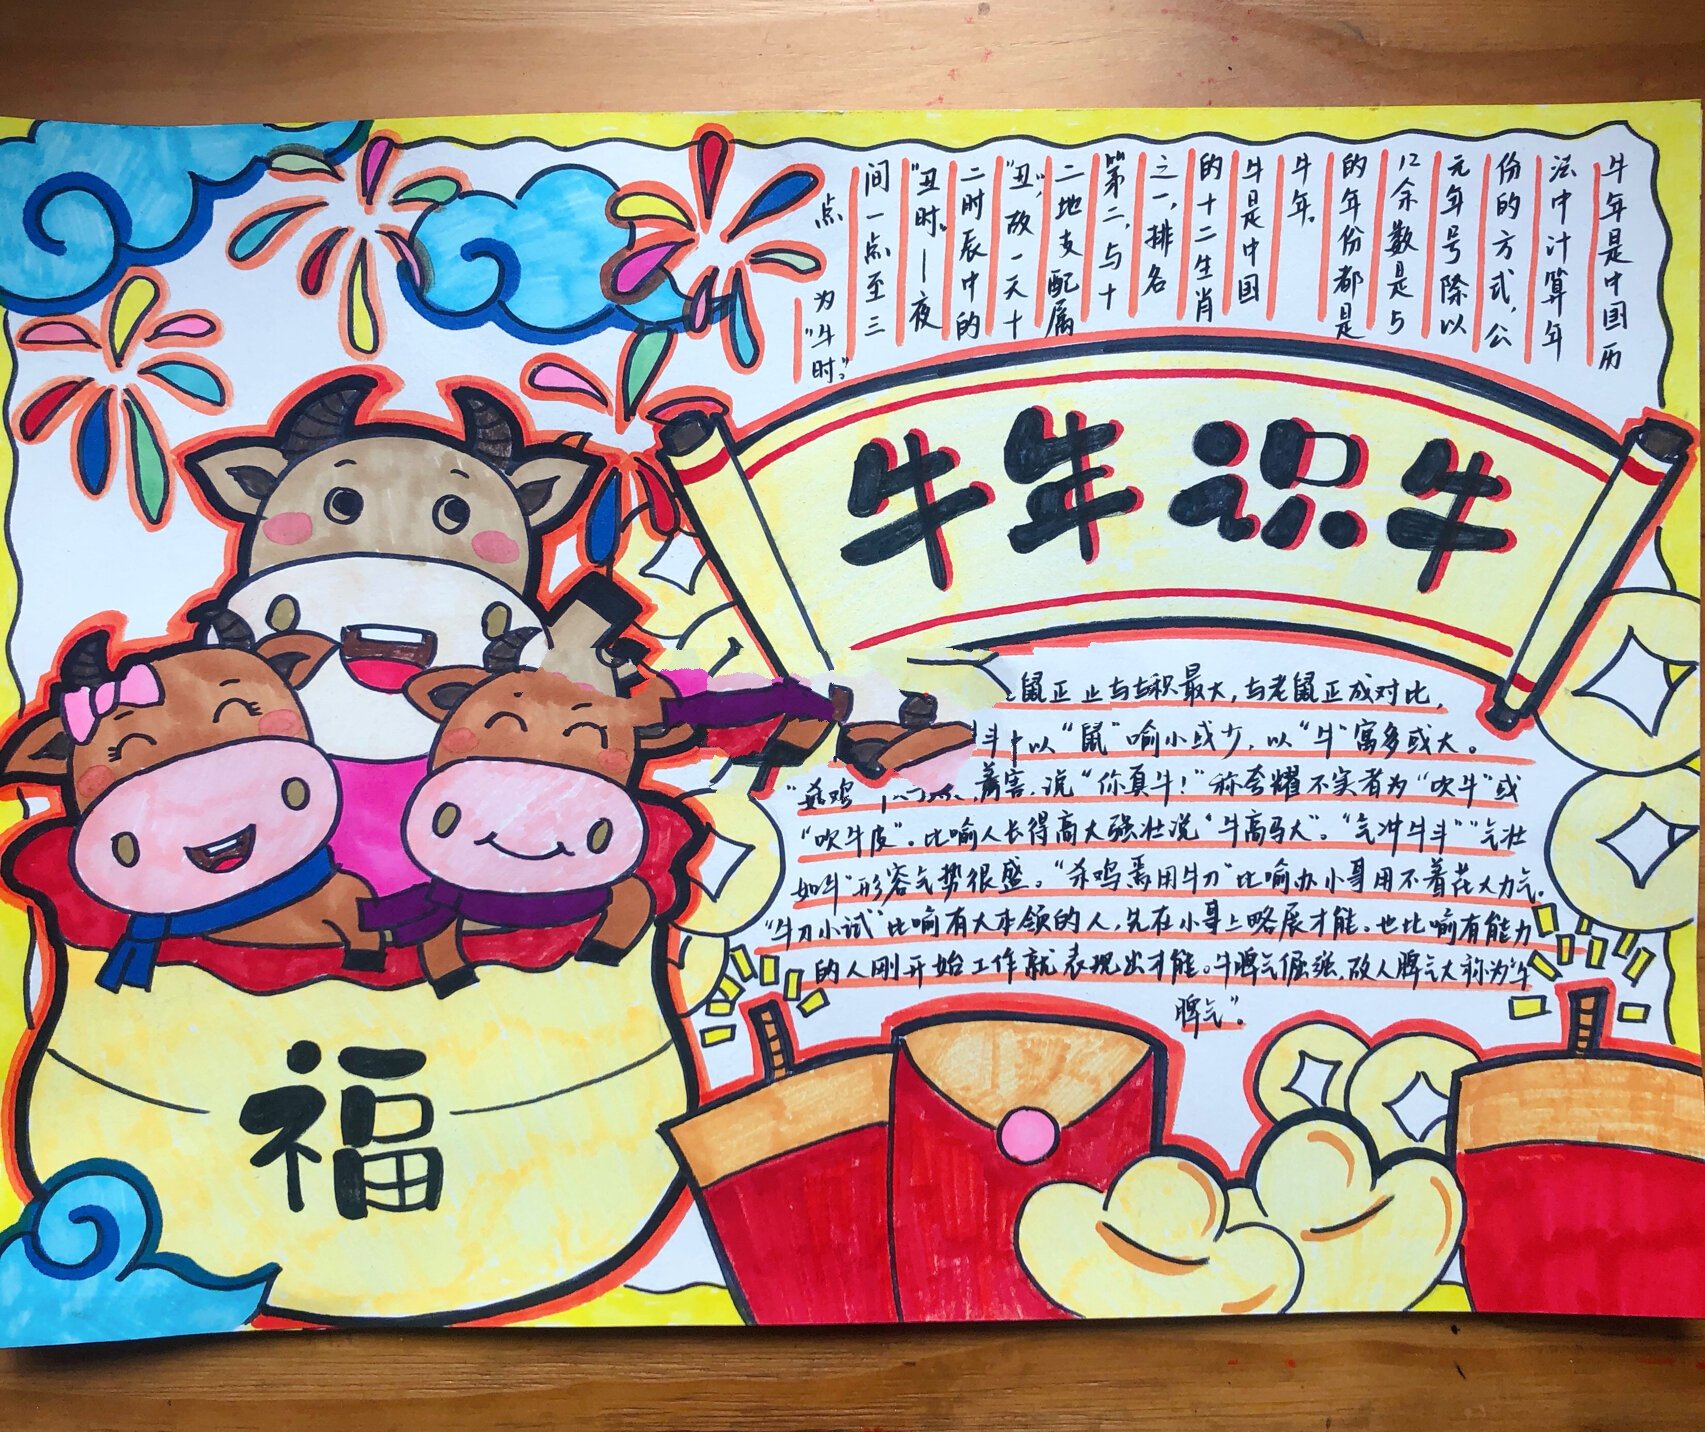 牛年是中国历
法中计算年
份的方式，公
元年号除以
12余数是5
的年份都是
牛年。
牛是中国
的十二生肖
之一，排名
第二，与十
二地支配属
“丑”，故一天十
二时辰中的
“丑时。—夜
间一点至三
点
为
“牛时。”
牛年识牛
鼠正 止与与积最大，与老鼠正成对比，
以“鼠”喻小或少，以“牛”寓多或大。
害，说“你真牛！”称夸耀不实者为“吹牛”或
“吹牛皮”。比喻人长得高大强壮说“牛高马大”。“气冲牛斗”“气壮
如牛”形容气势很盛。“杀鸡焉用牛刀”比喻办小事用不着花大力气。
“牛刀小试”比喻有大本领的人，先在小事上略展才能。也比喻有能力
的人刚开始工作就表现出才能。牛脾气倔强，故人脾气大称为“牛
脾气”。
福